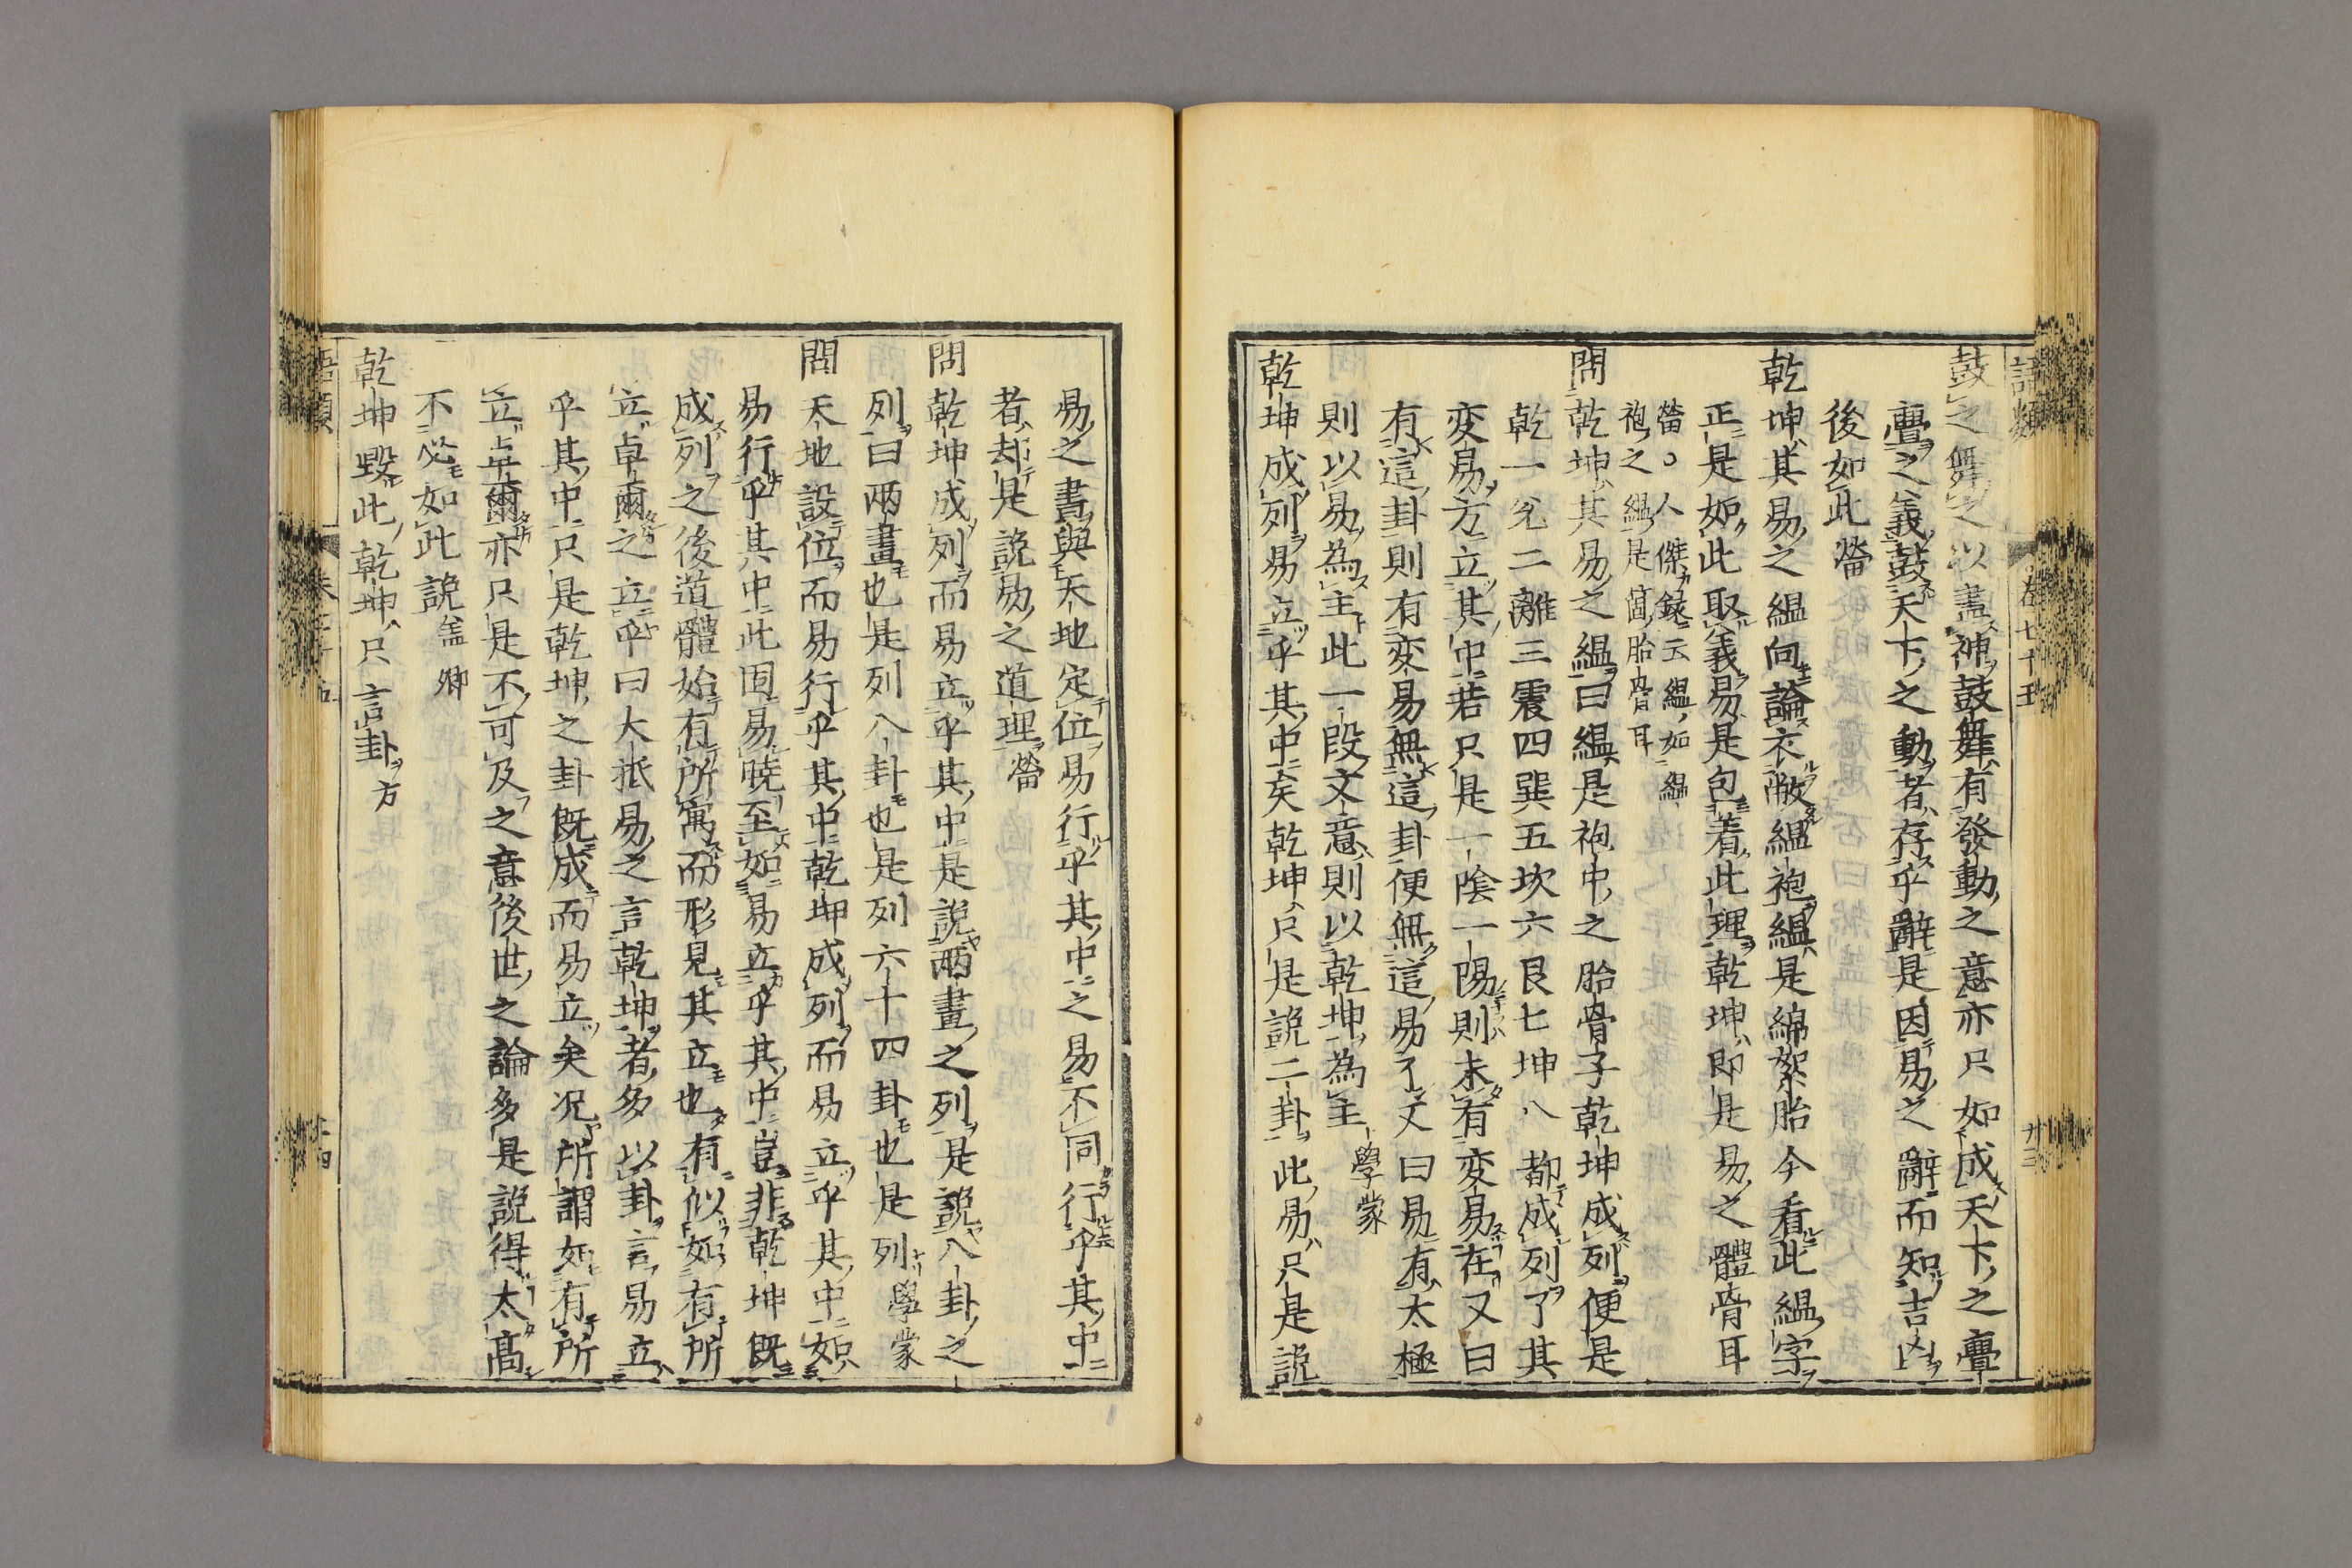 語類 卷七十五 廿三
鼓之舞之以盡神鼓舞有發動之意亦只如成天下之亹
亹之義鼓天下之動者存乎辭是因易之辭而知吉凶
後如此㽦
乾坤其易之縕向論衣敝縕袍縕是綿絮胎今看此縕字
正是如此取義易是包着此理乾坤即是易之體骨耳
㽦○人傑録云縕如縕
袍之縕是箇胎骨耳
問乾坤其易之縕曰縕是袍中之胎骨子乾坤成列便是
乾一兌二離三震四巽五坎六艮七坤八都成列了其
変易方立其中若只是一陰一陽則未有変易在又曰
有這卦則有変易無這卦便無這易了又曰易有太極
則以易為主此一段文意則以乾坤為主學蒙
乾坤成列易立乎其中矣乾坤只是説二卦此易只是説
易之書與天地定位易行乎其中之易不同行乎其中
者却是説易之道理㽦
問乾坤成列而易立乎其中是説兩畫之列是説八卦之
列曰兩畫也是列八卦也是列六十四卦也是列學蒙
問天地設位而易行乎其中乾坤成列而易立乎其中如
易行乎其中此固易曉至如易立乎其中豈非乾坤既
成列之後道體始有所寓而形見其立也有似如有所
立卓爾之立乎曰大抵易之言乾坤者多以卦言易立
乎其中只是乾坤之卦既成而易立矣况所謂如有所
立卓爾亦只是不可及之意後世之論多是説得太高
不必如此説盖卿
乾坤毀此乾坤只言卦方
語類